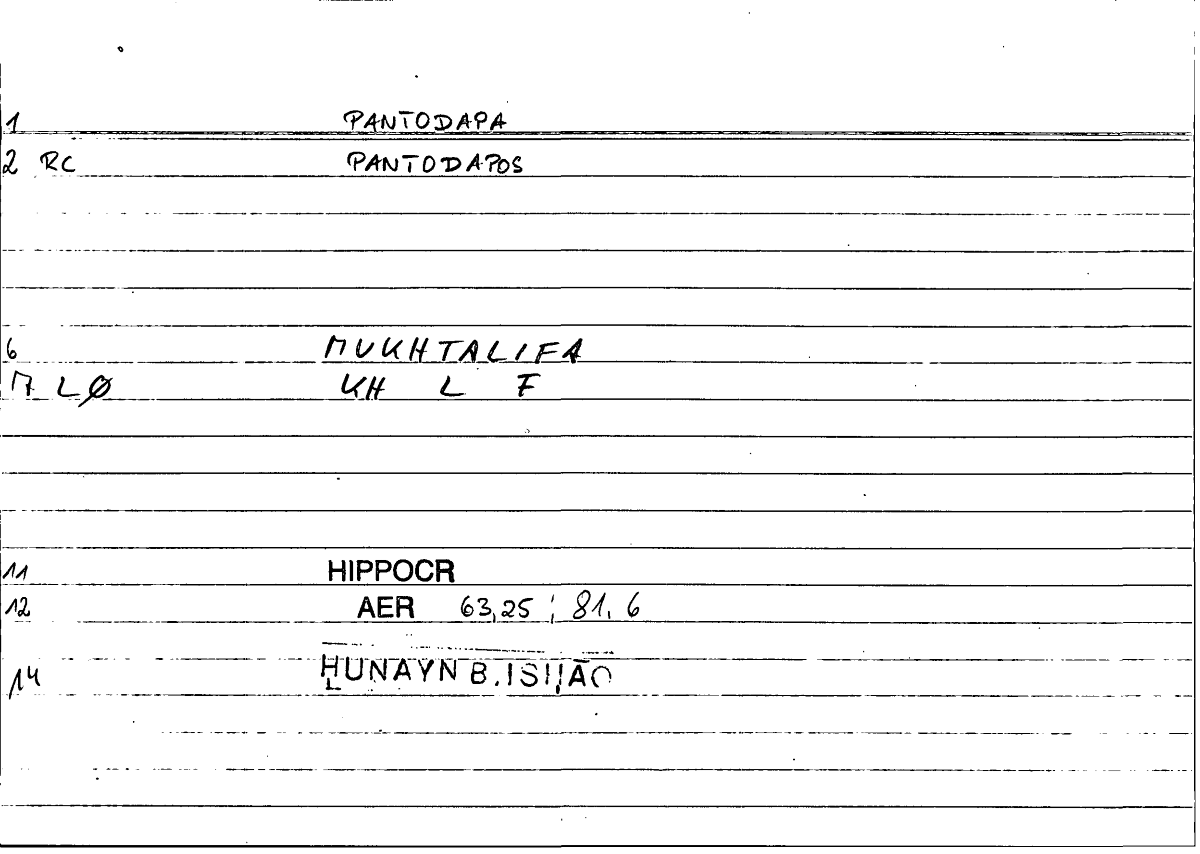 1 PANTODAPA
2 RC PANTODAPOS
6 MUKHTALIFA
7 LØ KH L F
11 HIPPOCR
12 AER 63,25 ; 81,6
14 HUNAYN B.